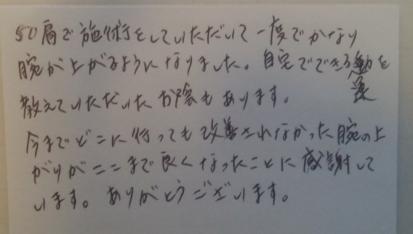 50肩で施術をしていただいて一度でかなり
腕が上がるようになりました。自宅でできる運動を
教えていただいたお陰もあります。
今までどこに行っても改善されなかった腕の上
がりがここまで良くなったことに感謝して
います。ありがとうございます。